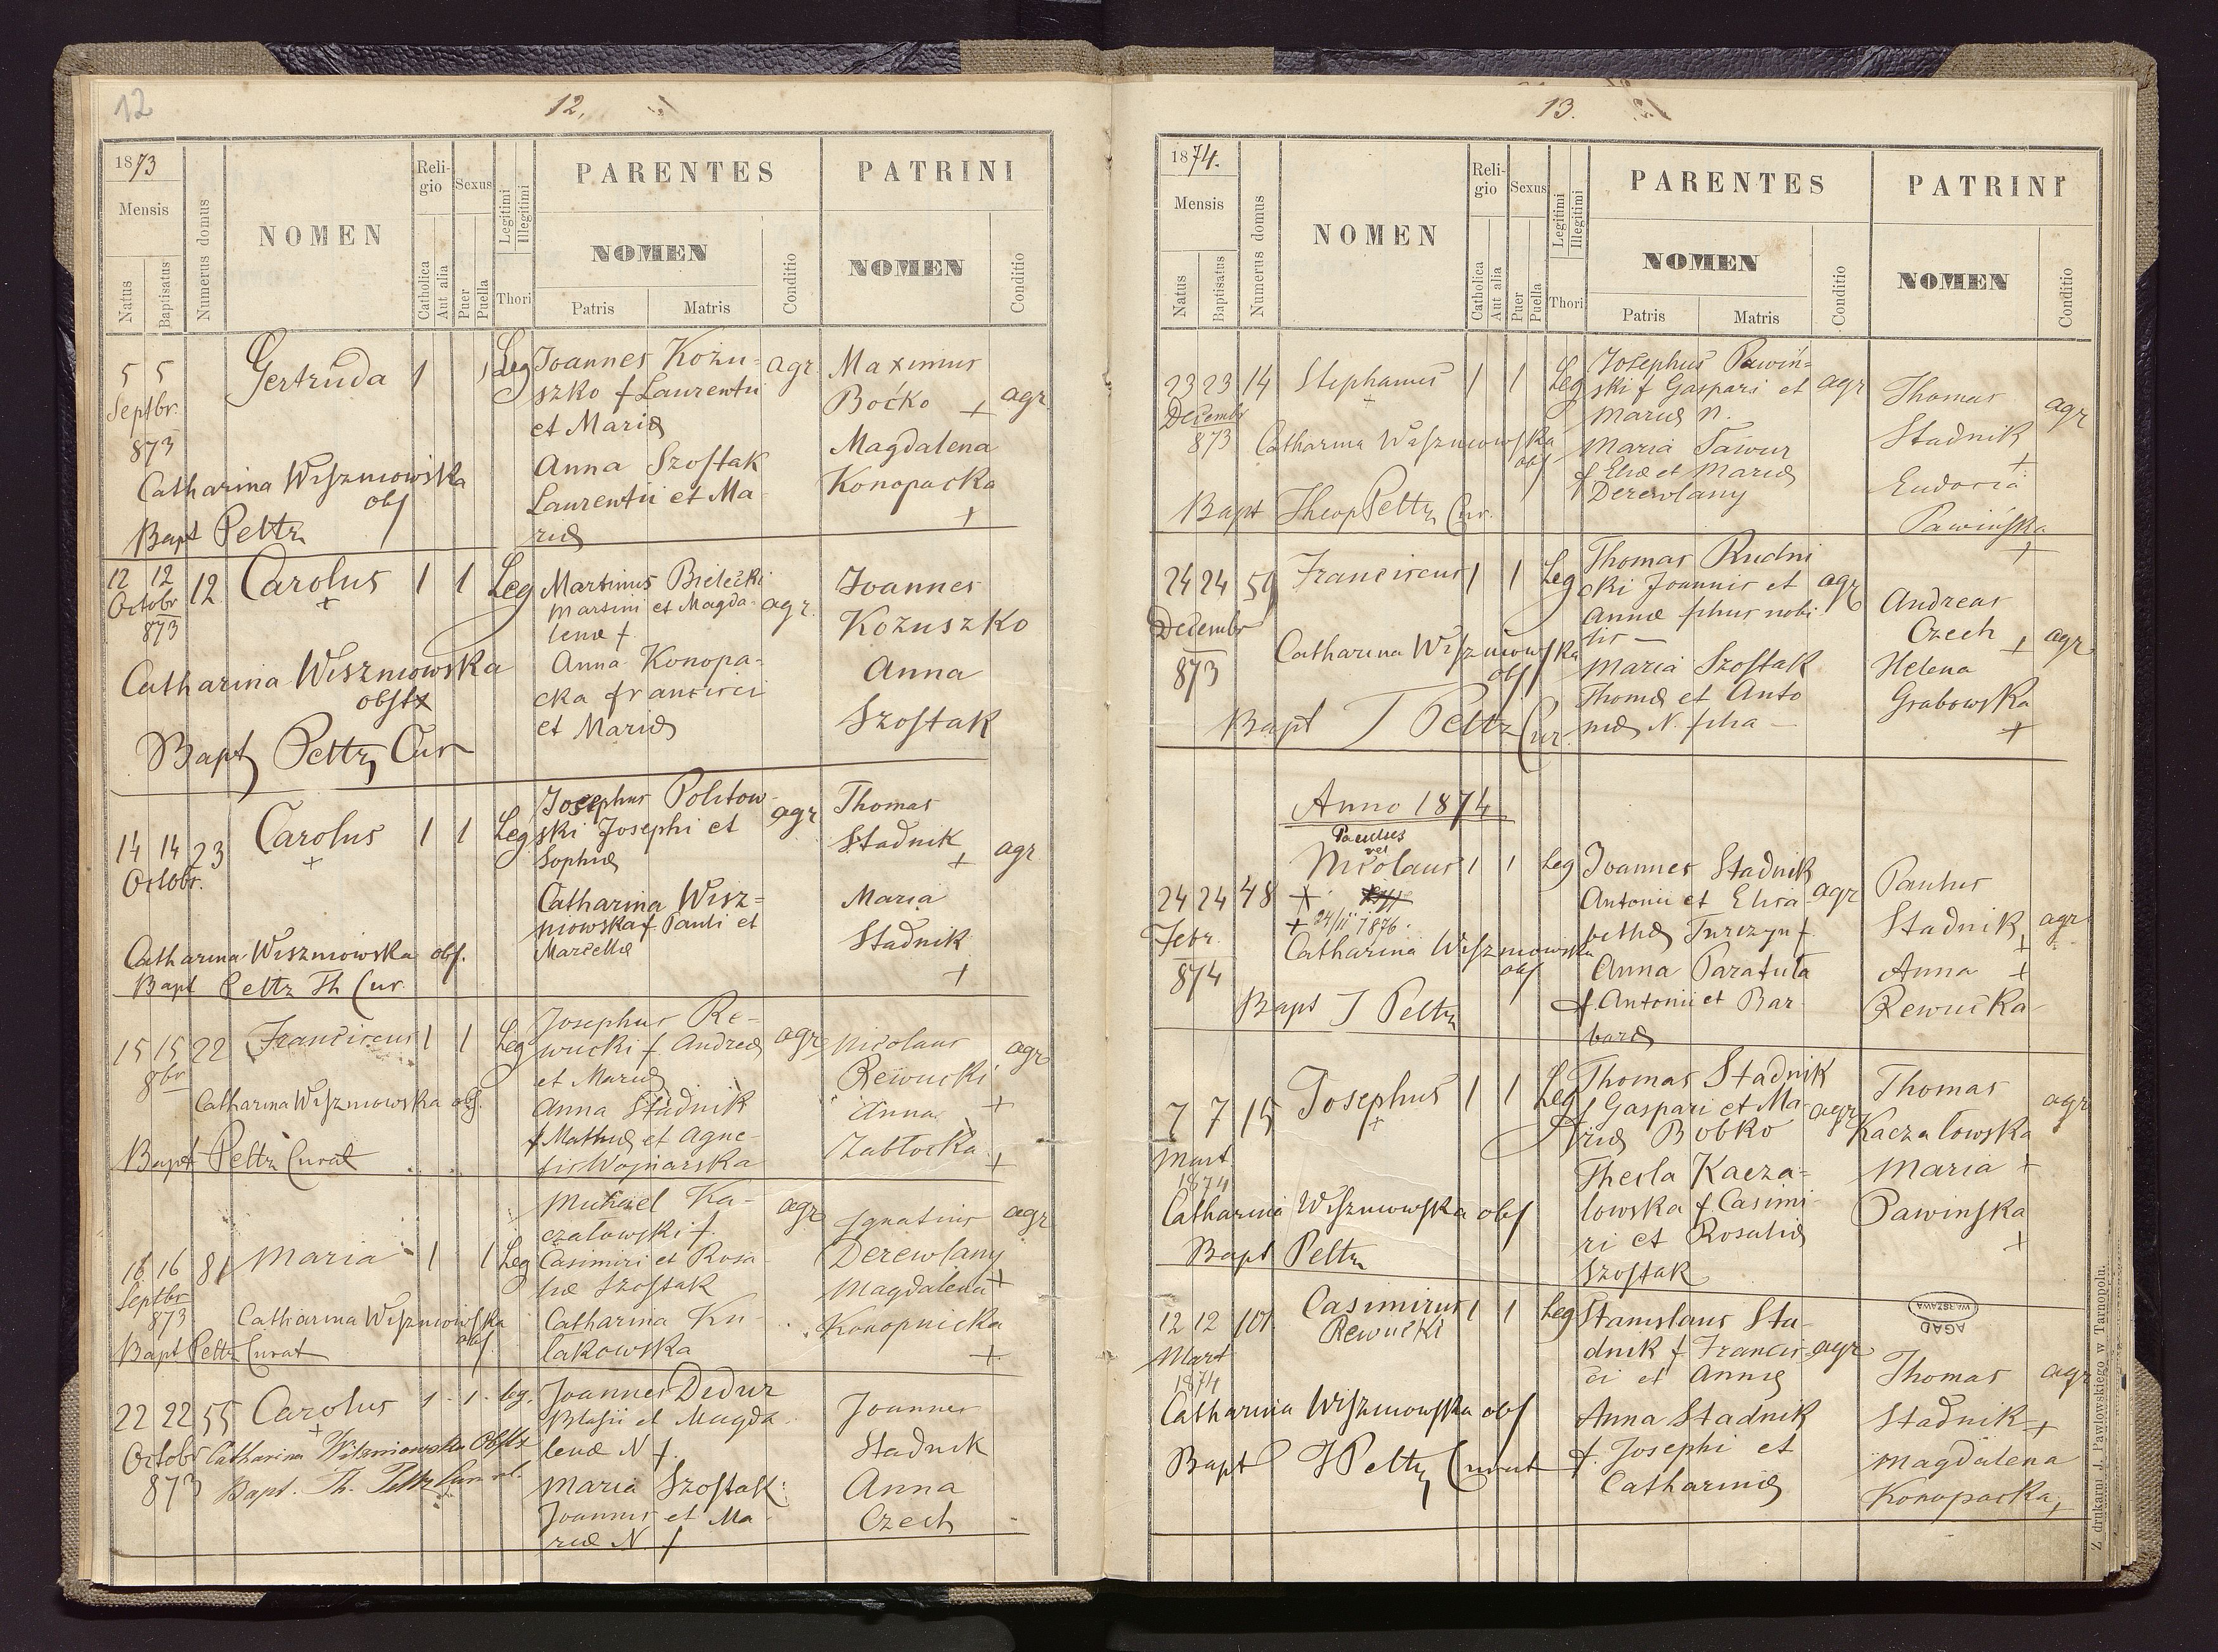 12
12.
1873
Mensis
Natus
Baptisatus
Numerus domus
NOMEN
Religio
Catholica
Aut alia
Sexus
Puer
Puella
Legitimi
Illegitimi
Thori
PARENTES
NOMEN
Patris
Matris
Conditio
PATRINI
NOMEN
Conditio
5 5 Gertruda 1 1 Leg Joannes Kozu- agr. Maximus
Septbr. szko f Laurentii Boćko + agr
873 et Mariæ Magdalena
Catharina Wiszniowska Anna Szostak Konopacka
obs Laurentii et Ma- +
Bapt Peltz riæ
12 12 12 Carolus 1 1 Leg Martinus Bielecki Joannes
Octobr + Martini et Magda- agr. Kozuszko
873 lenæ f.
Catharina Wiszniowska Anna Konopa- Anna
obstx cka f Francisci Szostak
Bapt Peltz Cur et Mariæ
14 14 23 Carolus 1 1 Leg Josephus Politow- agr Thomas
Octobr. + ski Josephi et Stadnik + agr
Sophiæ
Catharina Wisz= Maria
niowska f. Pauli et Stadnik
Catharina Wiszniowska obs. Marcellæ +
Bapt Peltz Th Cur.
15 15 22 Franciscus 1 1 Leg Josephus Re- agr Nicolaus agr
8br wucki f. Andreæ Rewucki
et Mariæ +
Catharina Wiszniowska obs. Anna Stadnik Anna
f Mathiæ et Agne- Zabłocka
Bapt Peltz Curat sis Wojnarska +
Michael Ka- agr Ignatius agr
czalowski f. Derewlany
16 16 81 Maria 1 1 Leg Casimiri et Rosa- Magdalena +
Septbr liæ Szostak
873 Catharina Wiszniowska Catharina Ku- Konopnicka
obs. lakowska +
Bapt Peltz Curat
22 22 55 Carolus 1. 1. leg. Joannes Dedur Joannes
Octobr + Blasii et Magda- Stadnik
873 Catharina Wiszniowska Obstx lenæ N f.
Bapt. Th. Peltz Curat. Maria Szostak Anna
Joannis et Ma- Czech
riæ N. f
13.
1874.
Mensis
Natus
Baptisatus
Numerus domus
NOMEN
Religio
Catholica
Aut alia
Sexus
Puer
Puella
Legitimi
Illegitimi
Thori
PARENTES
NOMEN
Patris
Matris
Conditio
PATRINI
NOMEN
Conditio
23 23 14 Stephanus 1 1 Leg Josephus Pawiń= agr Thomas agr
Decembr + ski f Gaspari et Stadnik
873 Mariæ N. +
Catharina Wiszniowska Maria Tawur Eudocia
obs f Eliæ et Mariæ Pawińska
Bapt Theop Peltz Cur. Derewlany +
24 24 59 Franciscus 1 1 Leg Thomas Rudni agr Andreas
Decembr cki Joannis et Czech + agr
873 Annæ filius nobi
Catharina Wiszniowska lis — Helena
obs Maria Szostak Grabowska
Bapt T Peltz Cur. Thomæ et Anto +
niæ N. filia —
Anno 1874
Paulus
vel
Nicolaus 1 1 Leg Joannes Stadnik Paulus
24 24 48 + Antonii et Elisa- agr Stadnik agr
Febr. + 24/II 1876. bethæ Turczyn f. +
874 Catharina Wiszniowska Anna Paratula Anna +
obs f. Antonii et Bar- Rewucka
Bapt T Peltz baræ
7 7 15 Josephus 1 1 Leg Thomas Stadnik Thomas agr
Mart. + f Gaspari et Ma- agr Kaczalowska
1874 riæ Bobko Maria +
Catharina Wiszniowska obs Thecla Kacza- Pawinska
Bapt Peltz lowska f. Casimi- +
ri et Rosaliæ
Szostak
12 12 101 Casimirus 1 1 Leg Stanislaus Sta-
Mart Rewucki dnik f Francis- agr Thomas agr
1874 ci et Annæ
Catharina Wiszniowska obs Anna Stadnik Stadnik +
Bapt T Peltz Curat f. Josephi et Magdalena
Catharinæ Konopacka +
AGAD
WARSZAWA
Z drukarni J. Pawlowskiego w Tarnopolu.